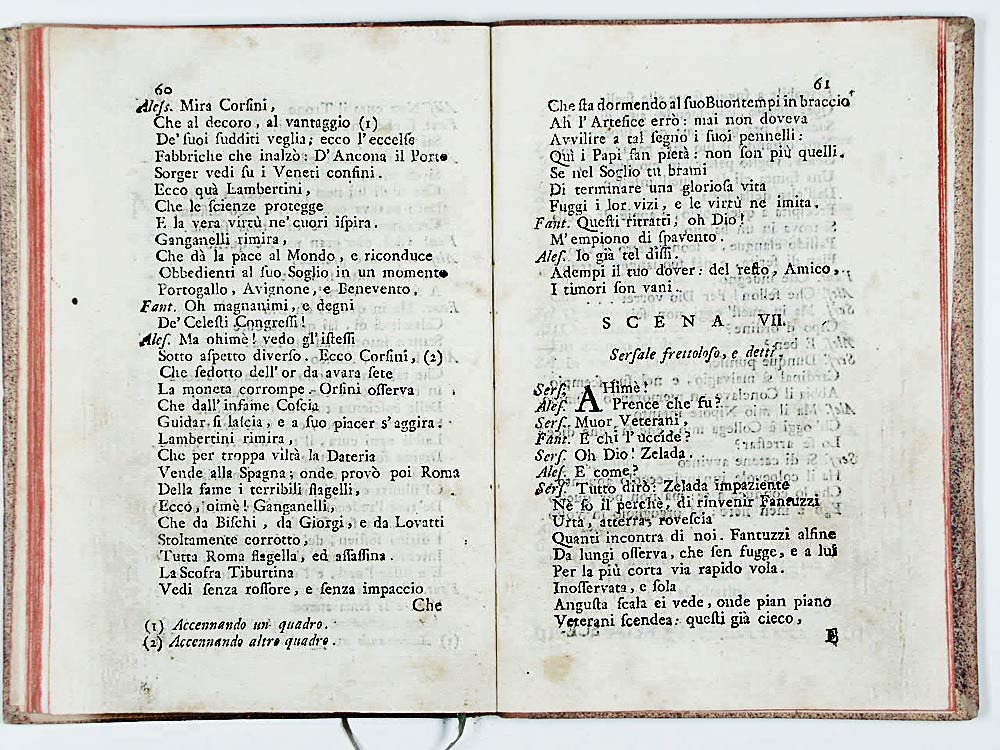 60
Aless. Mira Corsini,
Che al decoro, al vantaggio (1)
De' suoi sudditi veglia; ecco l'eccelse
Fabbriche che inalzò: D'Ancona il Porto
Sorger vedi su i Veneti confini.
Ecco quà Lambertini,
Che le scienze protegge
E la vera virtù ne' cuori ispira.
Ganganelli rimira,
Che dà la pace al Mondo, e riconduce
Obbedienti al suo Soglio in un momento
Portogallo, Avignone, e Benevento.
Fant. Oh magnanimi, e degni
De' Celesti Congressi!
Ales. Ma ohimè! vedo gl'istessi
Sotto aspetto diverso. Ecco Corsini, (2)
Che sedotto dell'or da avara sete
La moneta corrompe. Orsini osserva
Che dall'infame Coscia
Guidar si lascia, e a suo piacer s'aggira.
Lambertini rimira,
Che per troppa viltà la Dateria
Vende alla Spagna; onde provò poi Roma
Della fame i terribili flagelli,
Ecco, oimè! Ganganelli,
Che da Bischi, da Giorgi, e da Lovatti
Stoltamente corrotto,
Tutta Roma flagella, ed assassina.
La Scofra Tiburtina
Vedi senza rossore, e senza impaccio
Che
(1) Accennando un quadro.
(2) Accennando altro quadro.
61
Che sta dormendo al suo Buontempi in braccio
Ah l'Artefice errò: mai non doveva
Avvilire a tal segno i suoi pennelli:
Quì i Papi fan pietà: non son più quelli.
Se nel Soglio tu brami
Di terminare una gloriosa vita
Fuggi i lor vizi, e le virtù ne imita.
Fant. Questi ritratti; oh Dio!
M'empiono di spavento.
Ales. Io già tel dissi.
Adempi il tuo dover: del resto, Amico,
I timori son vani.
SCENA VII.
Sersale frettoloso, e detti.
Sers. AHimè!
Ales. Prence che fu?
Sers. Muor Veterani,
Fant. E chi l'uccide?
Sers. Oh Dio! Zelada.
Ales. E come?
Sers. Tutto dirò: Zelada impaziente
Nè so il perchè, di rinvenir Fantuzzi
Urta, atterra, rovescia
Quanti incontra di noi. Fantuzzi alfine
Da lungi osserva, che sen fugge, e a lui
Per la più corta via rapido vola.
Inosservata, e sola
Angusta scala ei vede, onde pian piano
Veterani scendea: questi già cieco,
E